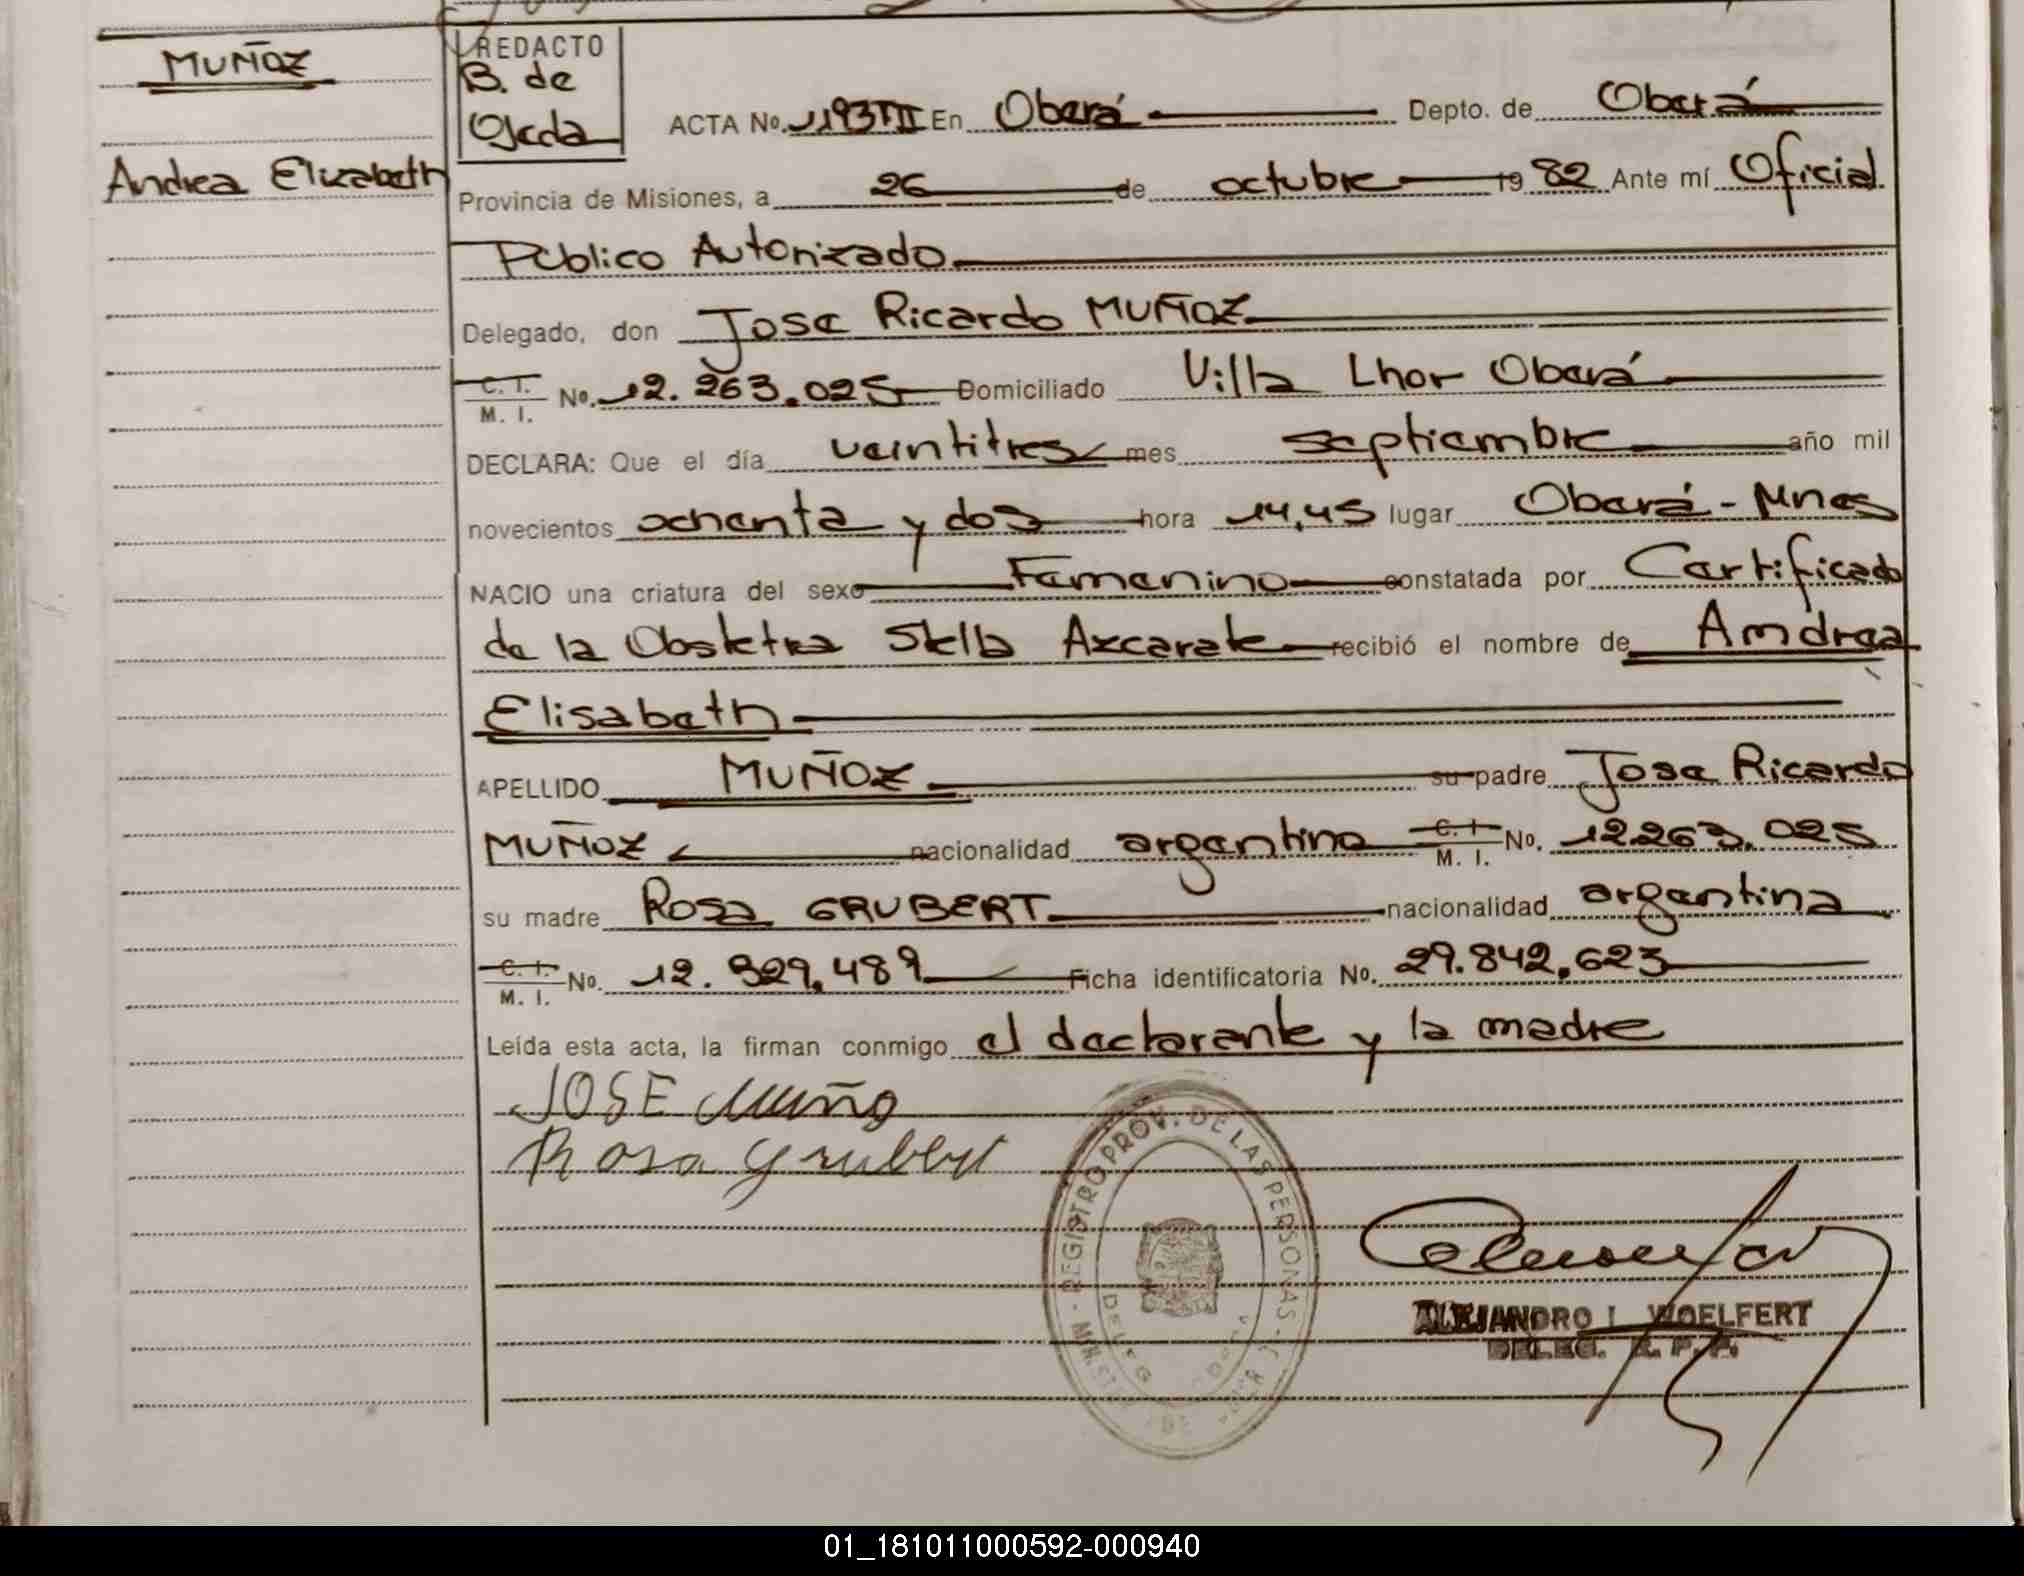 MUÑOZ
Andrea Elizabeth
REDACTO
B. de
Ojeda
ACTA No. 1193TII En Oberá Depto. de Oberá
Provincia de Misiones, a 26 de octubre 1982 Ante mí Oficial
Público Autorizado
Delegado, don Jose Ricardo MUÑOZ
C. I. M. I. No. 12.263.025 Domiciliado Villa Lhor Oberá
DECLARA: Que el día veintitres mes septiembre año mil
novecientos ochenta y dos hora 14,45 lugar Oberá - Mnes
NACIO una criatura del sexo Femenino constatada por Certificado
de la Obstetra Stella Azcarate recibió el nombre de Andrea
Elisabeth
APELLIDO MUÑOZ su padre Jose Ricardo
MUÑOZ nacionalidad argentino C. I. M. I. No. 12.263.025
su madre Rosa GRUBERT nacionalidad argentina
C. I. M. I. No. 12.929.489 Ficha identificatoria No. 29.842.623
Leída esta acta, la firman conmigo el declarante y la madre
JOSE Muño
Rosa Grubert
REGISTRO PROV. DE LAS PERSONAS
ALEJANDRO I. WOELFERT
DELEG. R. P. P.
01_181011000592-000940